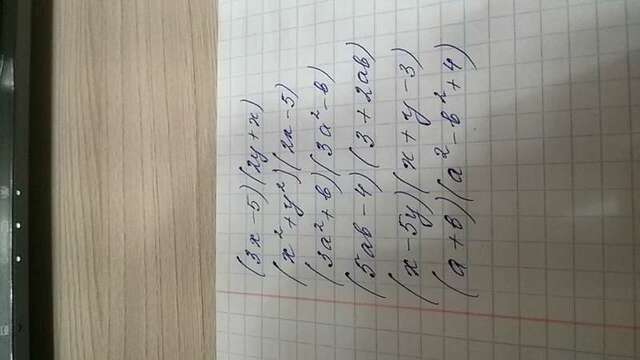 (3x-5)(2y+x)
(x²+y²)(2x-5)
(3a²+b)(3a²-b)
(5ab-4)(3+2ab)
(x-5y)(x+y-3)
(a+b)(a²-b²+4)